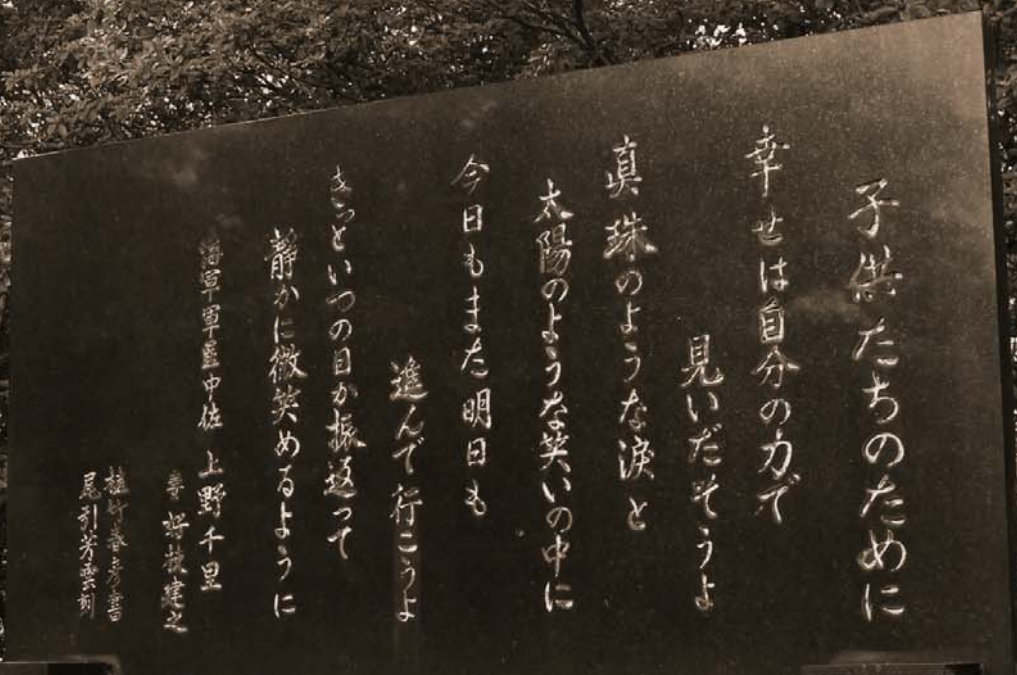 子供たちのために
幸せは自分の力で
見いだそうよ
真珠のような涙と
太陽のような笑いの中に
今日もまた明日も
進んで行こうよ
きっといつの日か振返って
静かに微笑めるように
海軍軍医中佐 上野千里
妻 好枝建之
春彦書
尾引芳雲刻